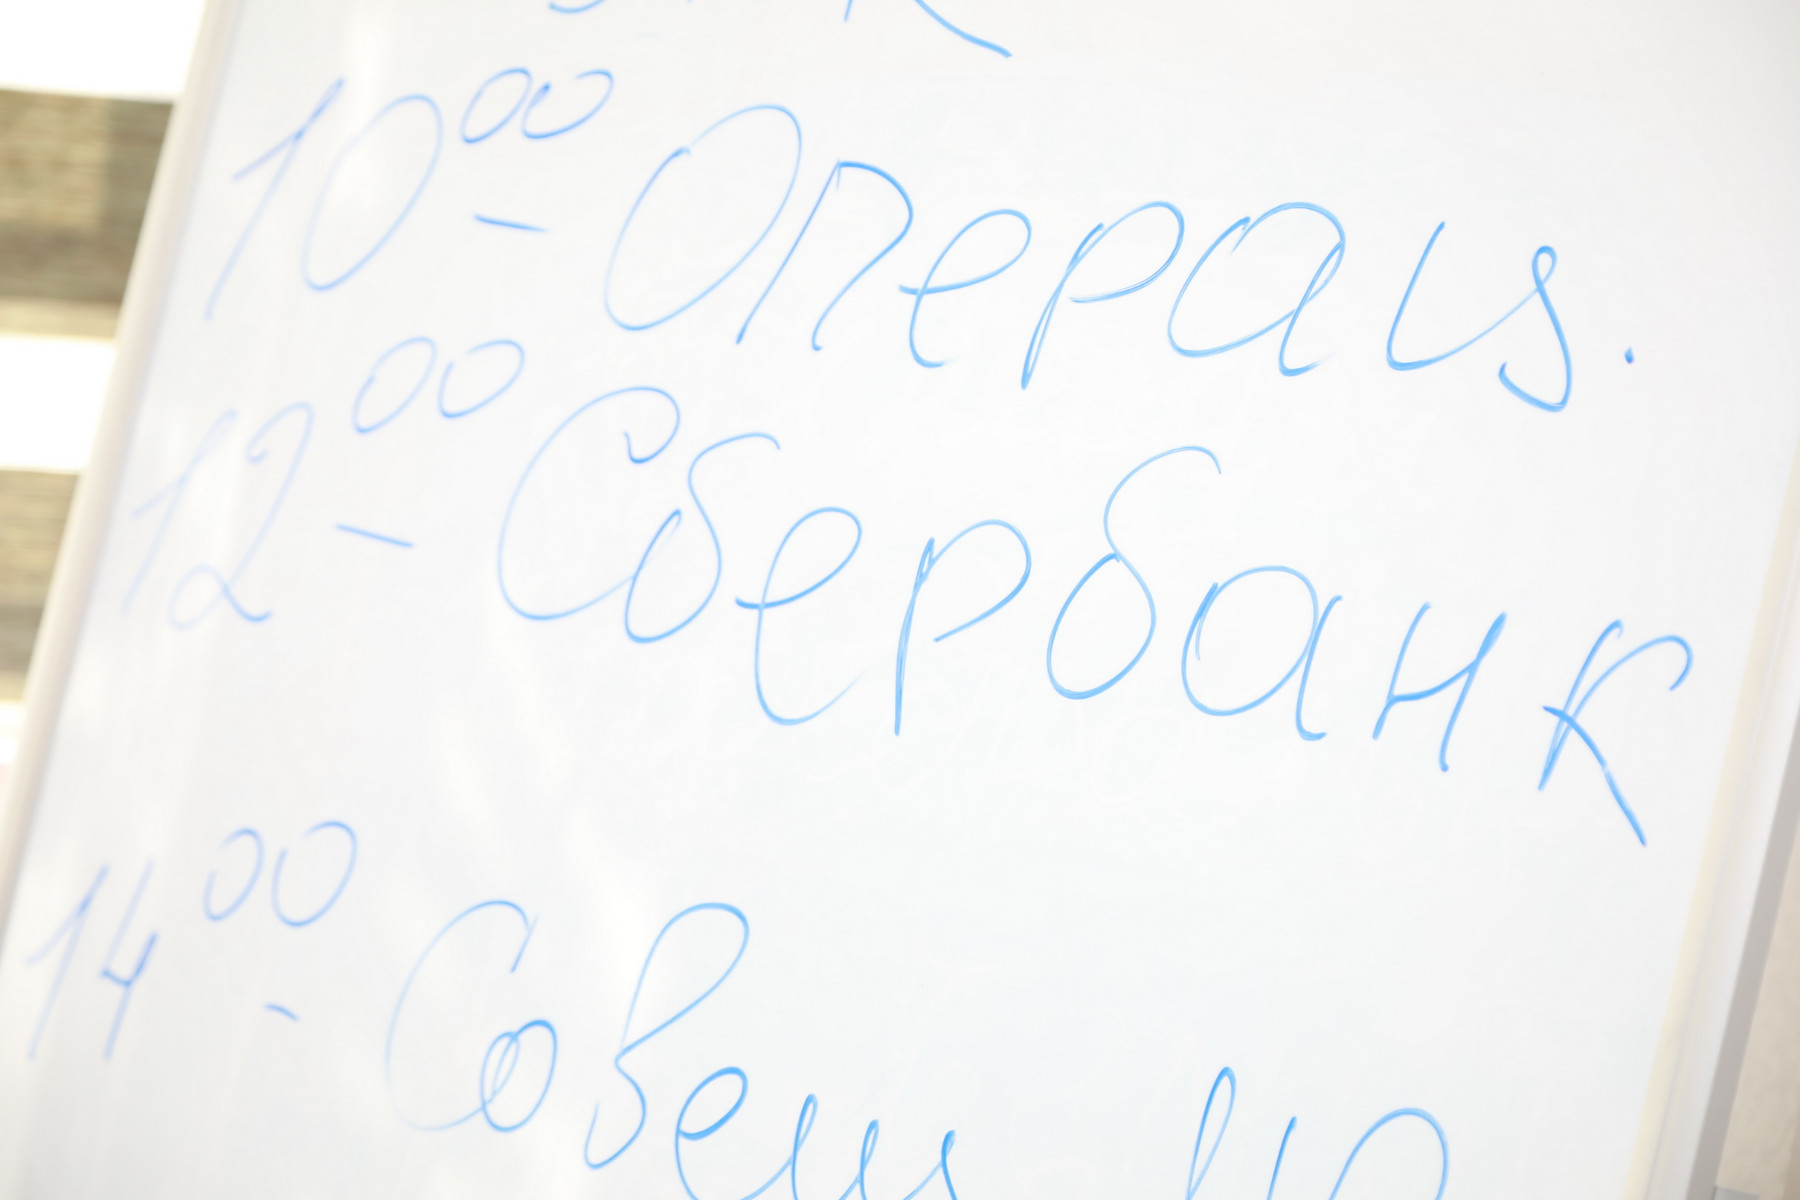 10⁰⁰ - Операц.
12⁰⁰ - Сбербанк
14⁰⁰ - Совещ